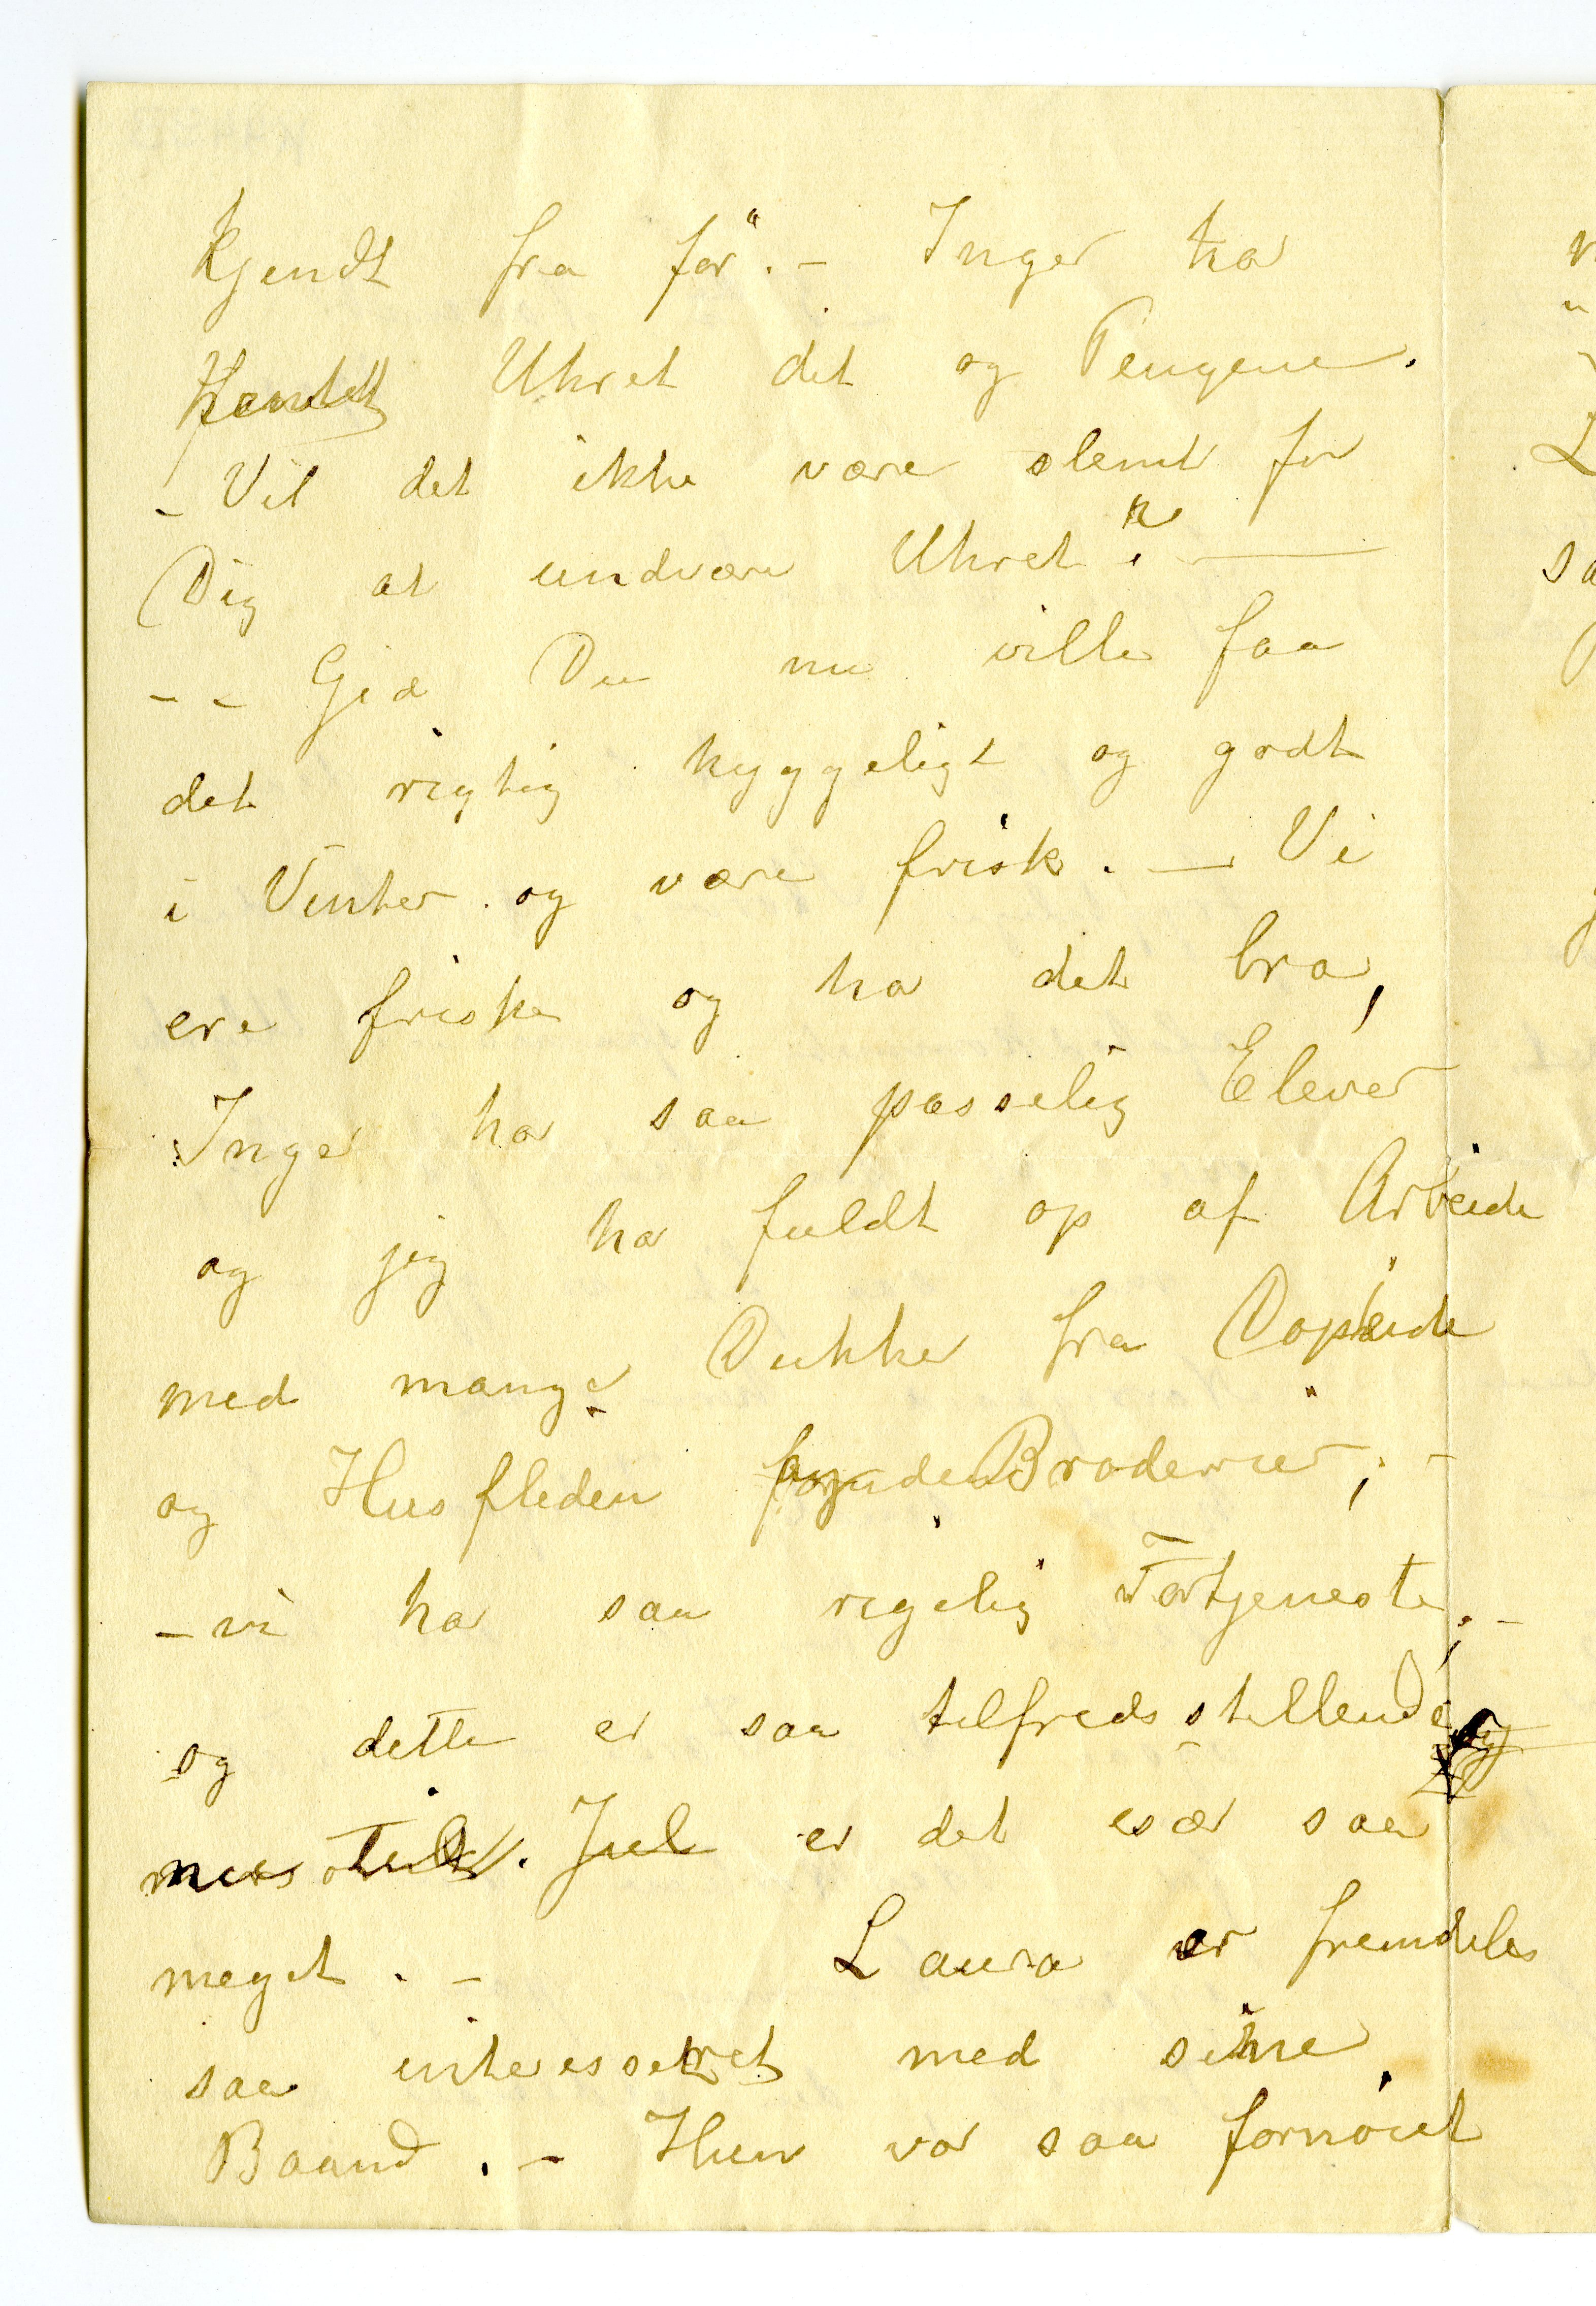 kjendt fra før". – Inger har
Hentet Uhret dit og Pengene.
– Vil det ikke være slemt for
Dig at undvære Uhret? —
– – Gid Du nu ville faa
det rigtig hyggeligt og godt
i Vinter og være frisk. — Vi
ere friske og ha det bra,
Inger har saa passelig Elever
og jeg har fuldt op af Arbeide
med mange Dukker fra
og Husfliden Broderier, –
– vi har saa rigelig Fortjeneste, –
og dette er saa tilfredsstillende, og
Jul er det især saa
meget. – Laura er fremdeles
saa interesseret med sine
Baand. – Hun var saa fornøiet